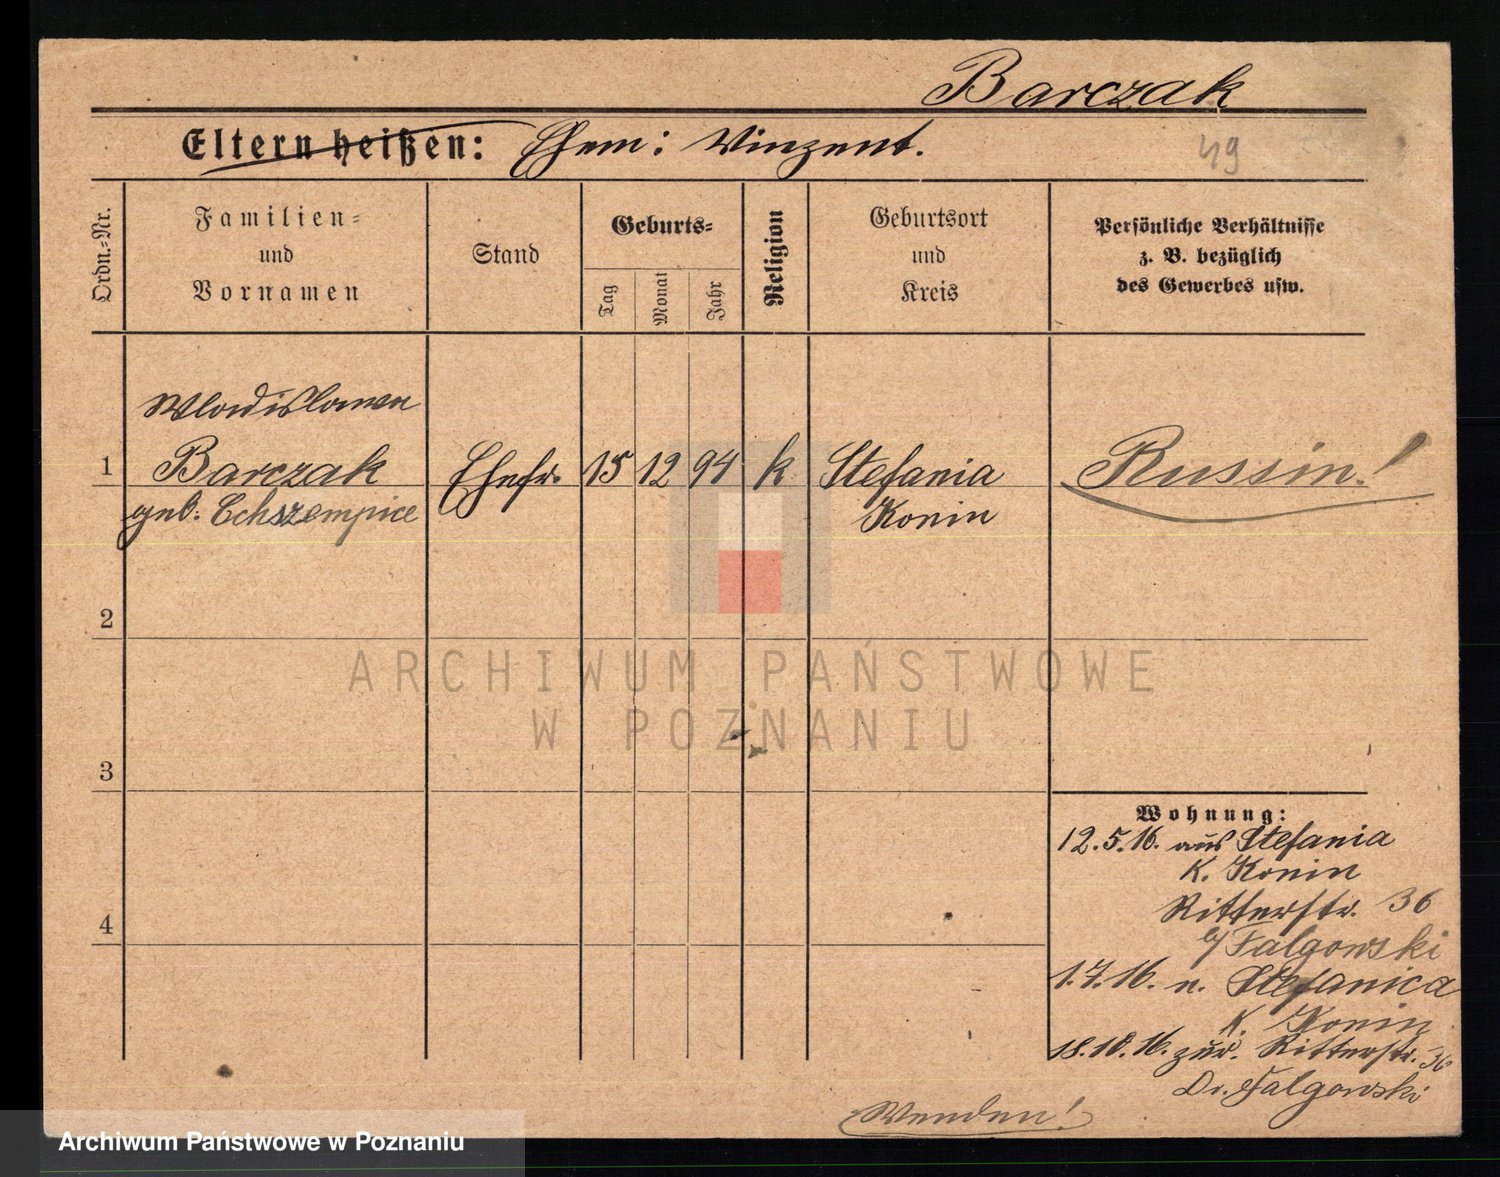 Barczak
Eltern heißen: Ehem: Vinzent.
49
Ordn.=Nr.
Familien=
und
Vornamen
Stand
Geburts=
Tag
Monat
Jahr
Religion
Geburtsort
und
Kreis
Persönliche Verhältnisse
z. B. bezüglich
des Gewerbes usw.
Wladislawa
1 Barczak Ehefr. 15 12 94 k Stefania Russin!
geb. Konin
2
3
4
ARCHIWUM PAŃSTWOWE
W POZNANIU
Wohnung:
12.5.16. aus Stefania
K. Konin
Ritterstr. 36
b/ Falgowski
1.7.16. n. Stefanica
K. Konin
18.10.16. zur. Ritterstr. 36
Dr. Falgowski
Wenden!
Archiwum Państwowe w Poznaniu